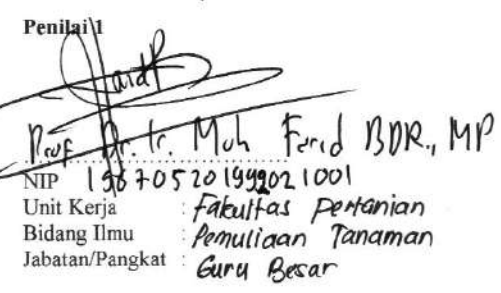 Penilai 1
Prof. Dr. Ir. Muh Farid BDR., MP
NIP 196705201992021001
Unit Kerja : Fakultas Pertanian
Bidang Ilmu : Pemuliaan Tanaman
Jabatan/Pangkat : Guru Besar